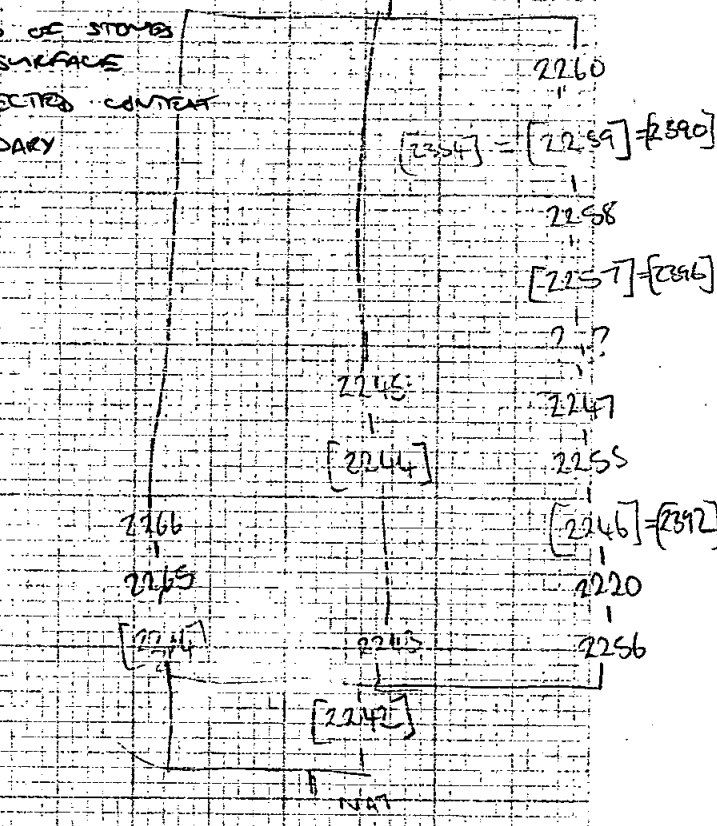 OF STONES
SURFACE
ECTED CONTENT
DARY
2260
[2354] = [2259] = [2390]
2258
[2257] = [2396]
2247
2245
[2244]
2255
2266
[2246] = [2392]
2265
2220
2243
2256
[2242]
NAT